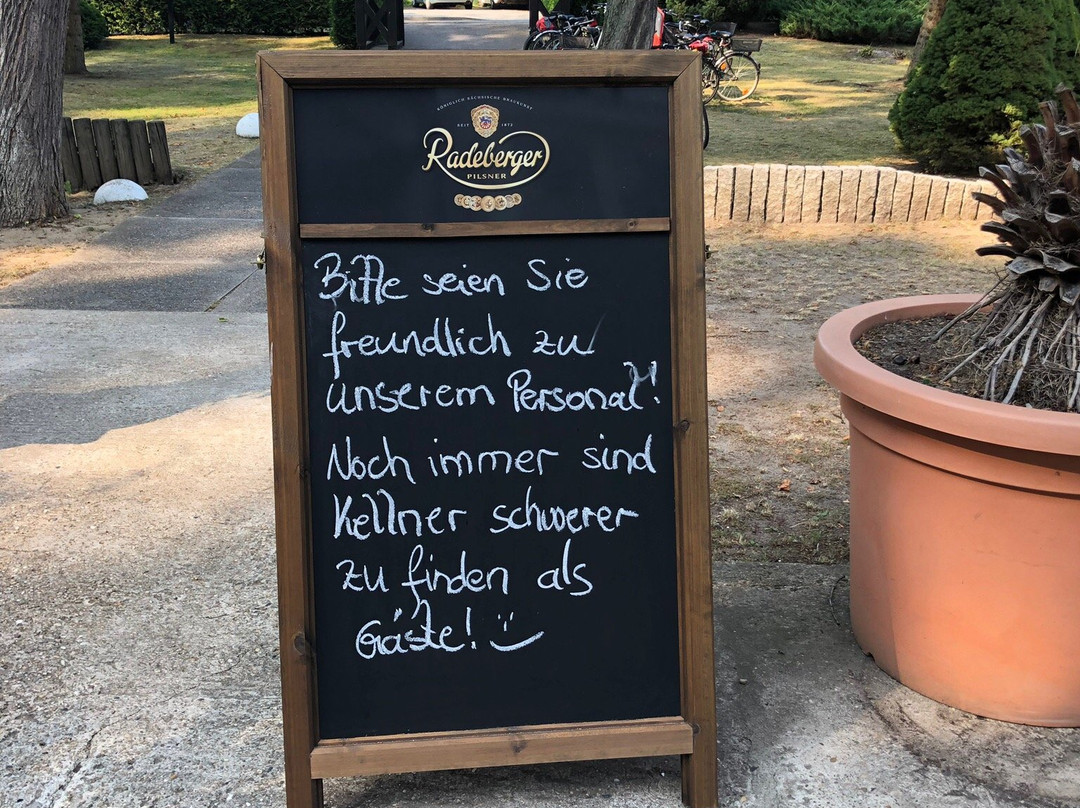 KÖNIGLICH SÄCHSISCHE BRAUKUNST
SEIT 1872
Radeberger
PILSNER
Bitte seien Sie
freundlich zu
unserem Personal!
Noch immer sind
Kellner schwerer
zu finden als
Gäste! :)